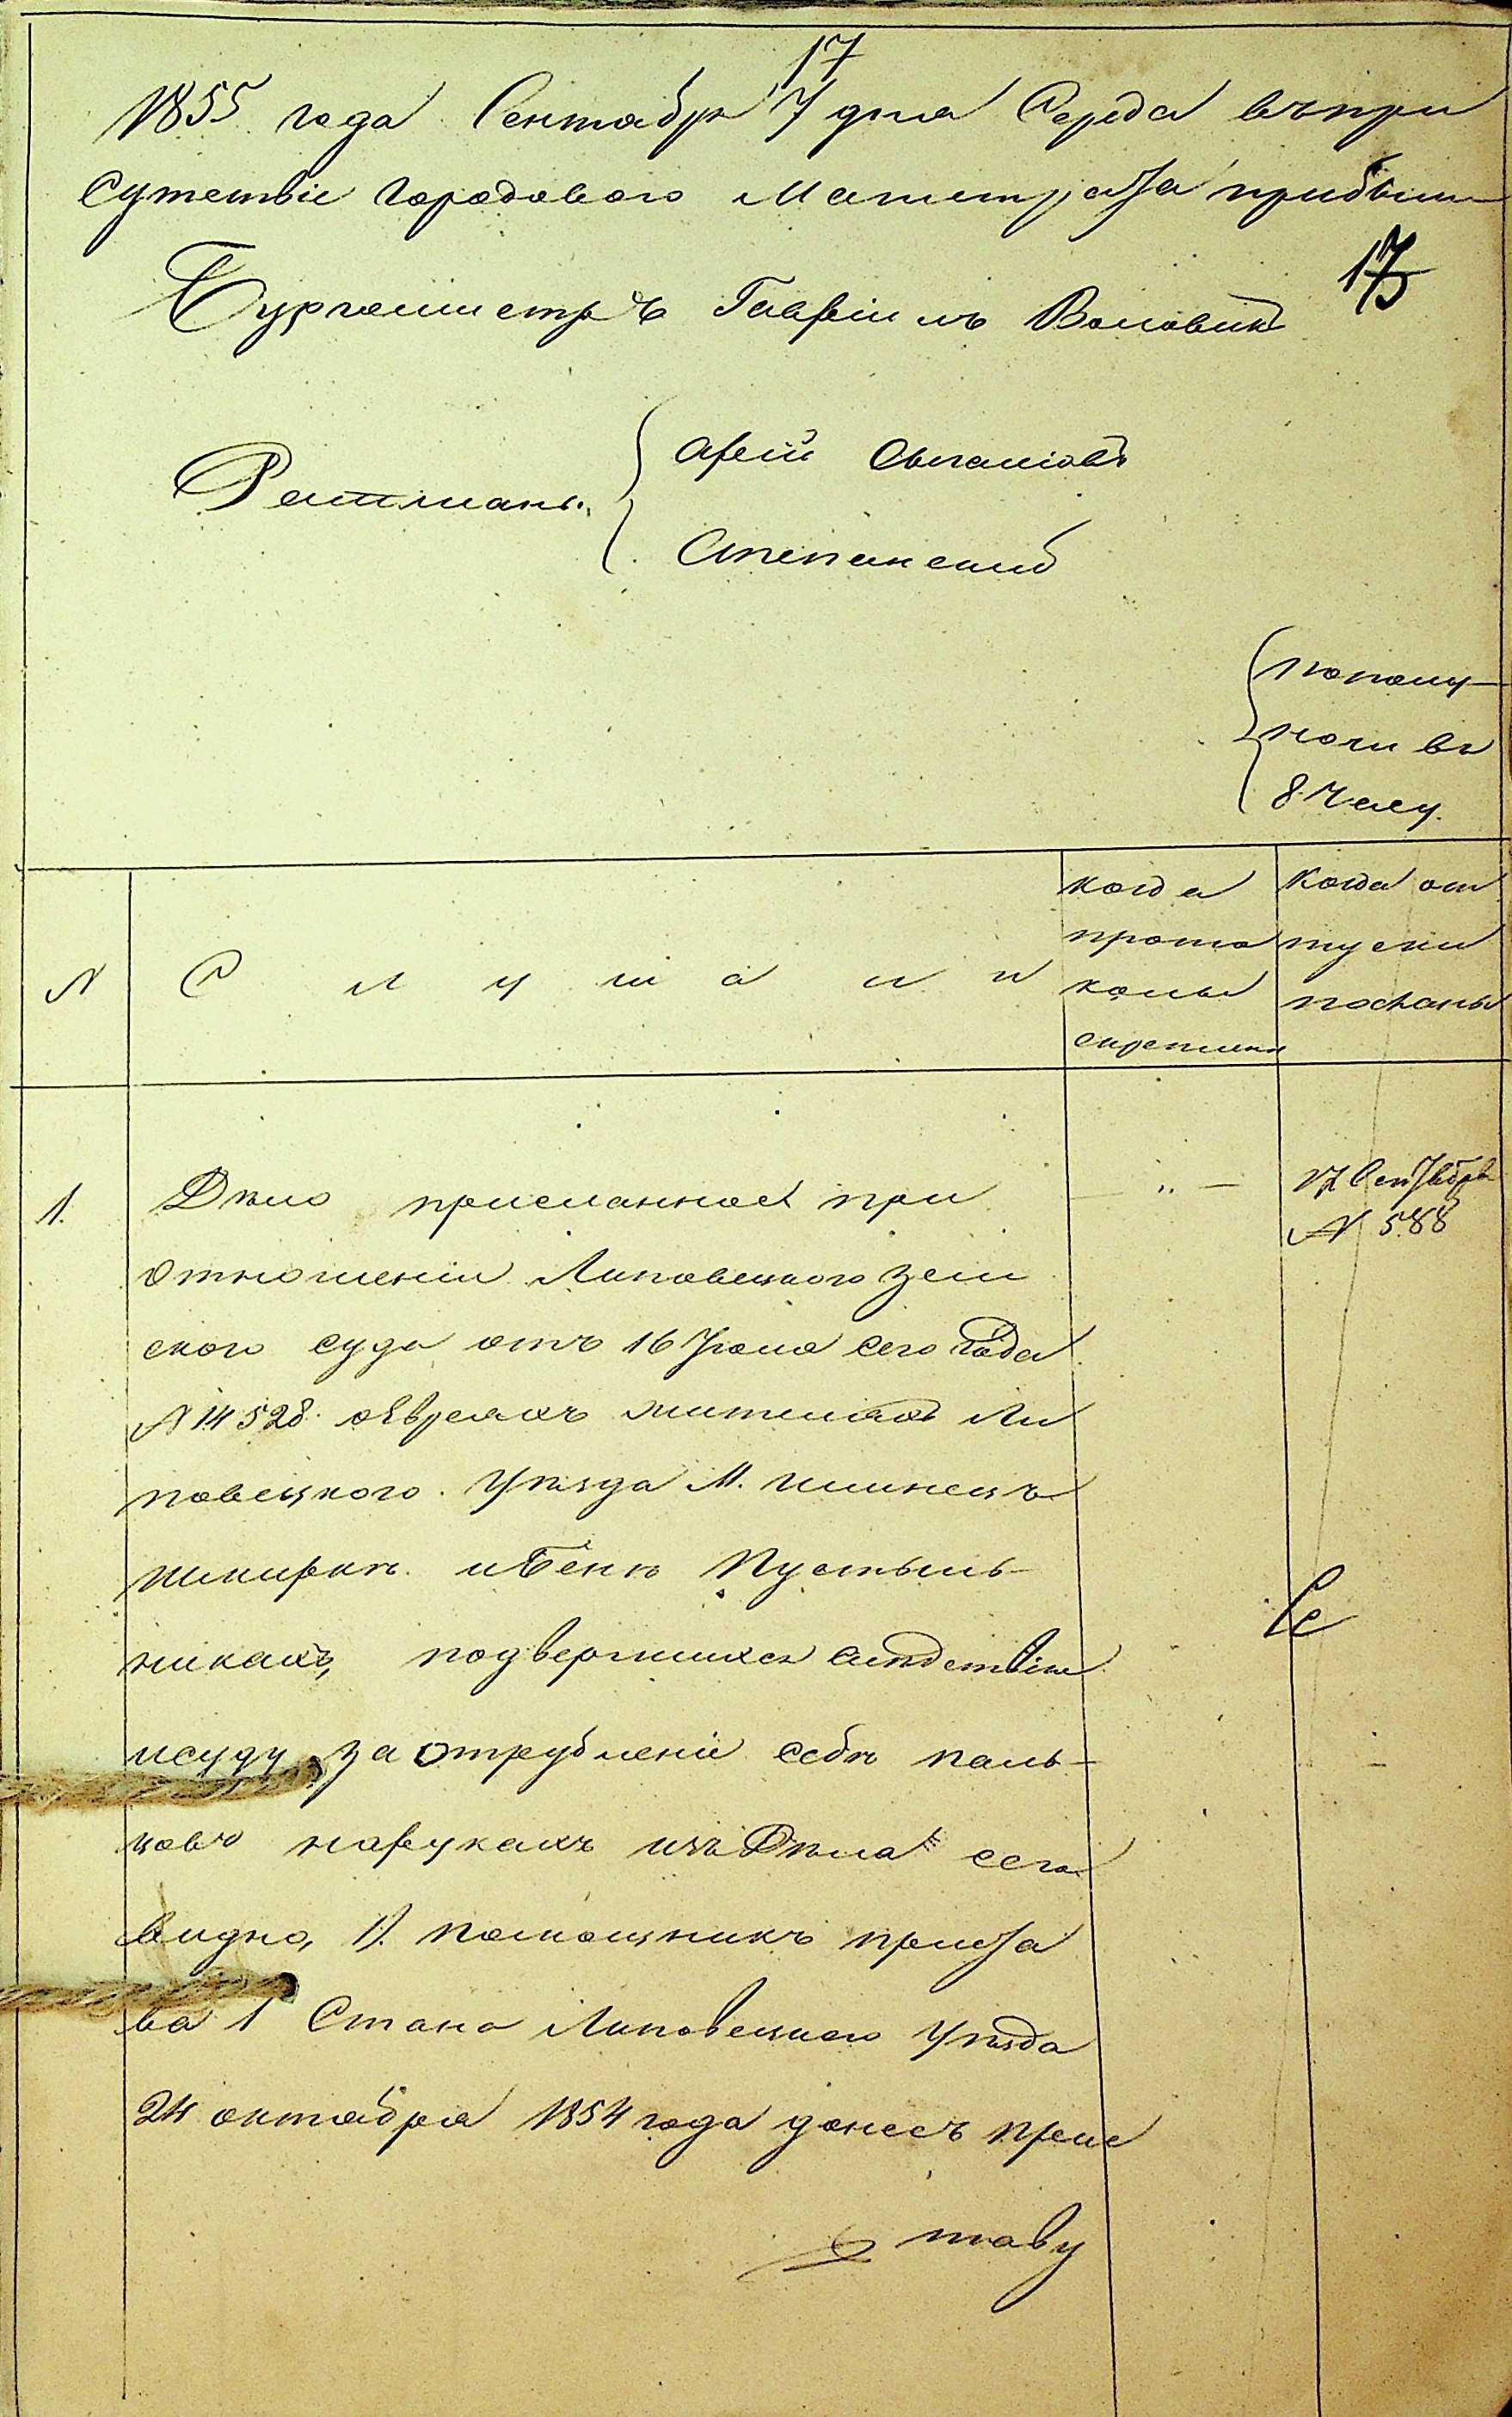 17
1855 года Сентября 7 дня Середа въ при
сутствіе Городового Магистрата прибыли
17
Бургомистръ Гавріилъ Воловикъ
Ратманы
Арсій
Степанскій
пополу-
ночи въ
8 часу.
N
Слушали
когда
прото
колы
скреплены
Когда от
пуски
посланы
1.
Дѣло присланное при
17 Сентября
N 588
отношеніи Липовецкого Зем
ского суда отъ 16 Іюля сего года
N 14528 о Евреяхъ жителяхъ Ли
повецкого Уѣзда М. Илинецъ
Шкирѣ и Бенѣ Пустыль-
никахъ, подвергшихся слѣдствію
и суду за отрубленіе себѣ паль-
цовъ на рукахъ изъ Дѣла сего
видно, 1). Помощникъ приста
ва 1 Стана Липовецкого Уѣзда
24 октября 1854 года донесъ прис
таву